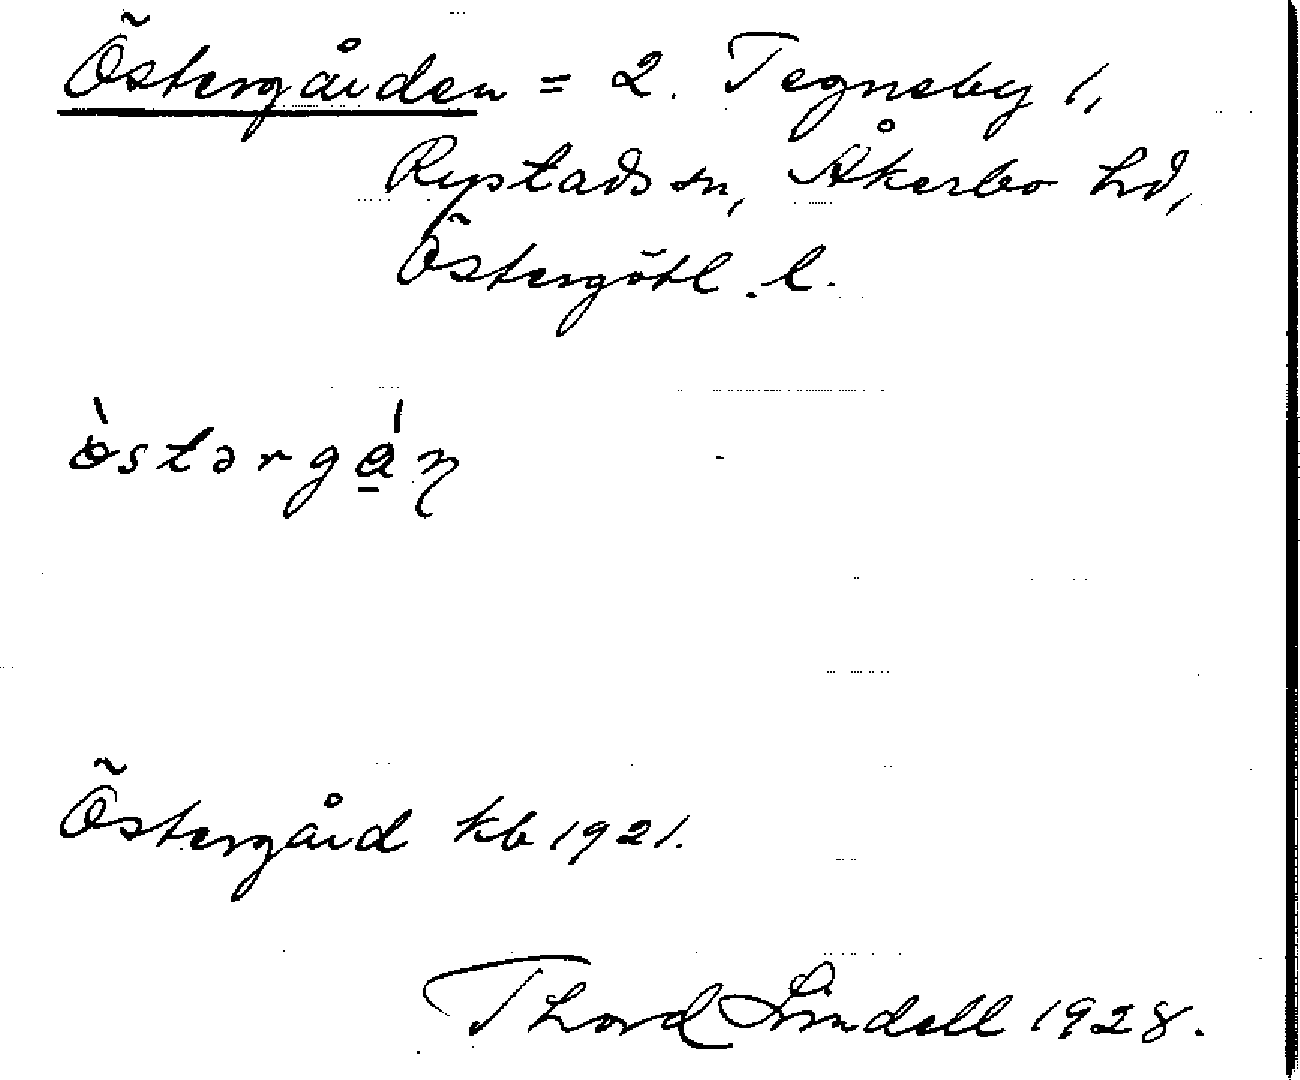 Östergården = 2. Tegneby 1,
Rystads sn, Åkerbo hd,
Östergötl. l.
ɵ̀stərgá̱ɳ
Östergård kb 1921.
Thord Lindell 1928.